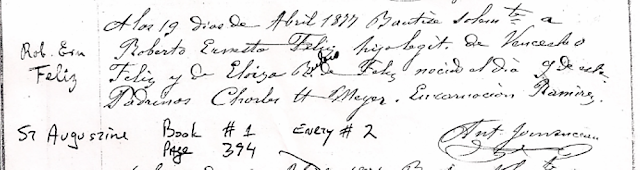 A los 19 dias de Abril 1877 Bautise solemte a
Rob. Ern Roberto Ernesto Feliz hijo legit. de Vencesloo
Feliz Feliz y de Eloiza de Feliz nocio el dia 9 de este
Padrinos Charles H Meyer. Encarnación Ramirez.
St Augustine Book #1 Entry #2
Page 394